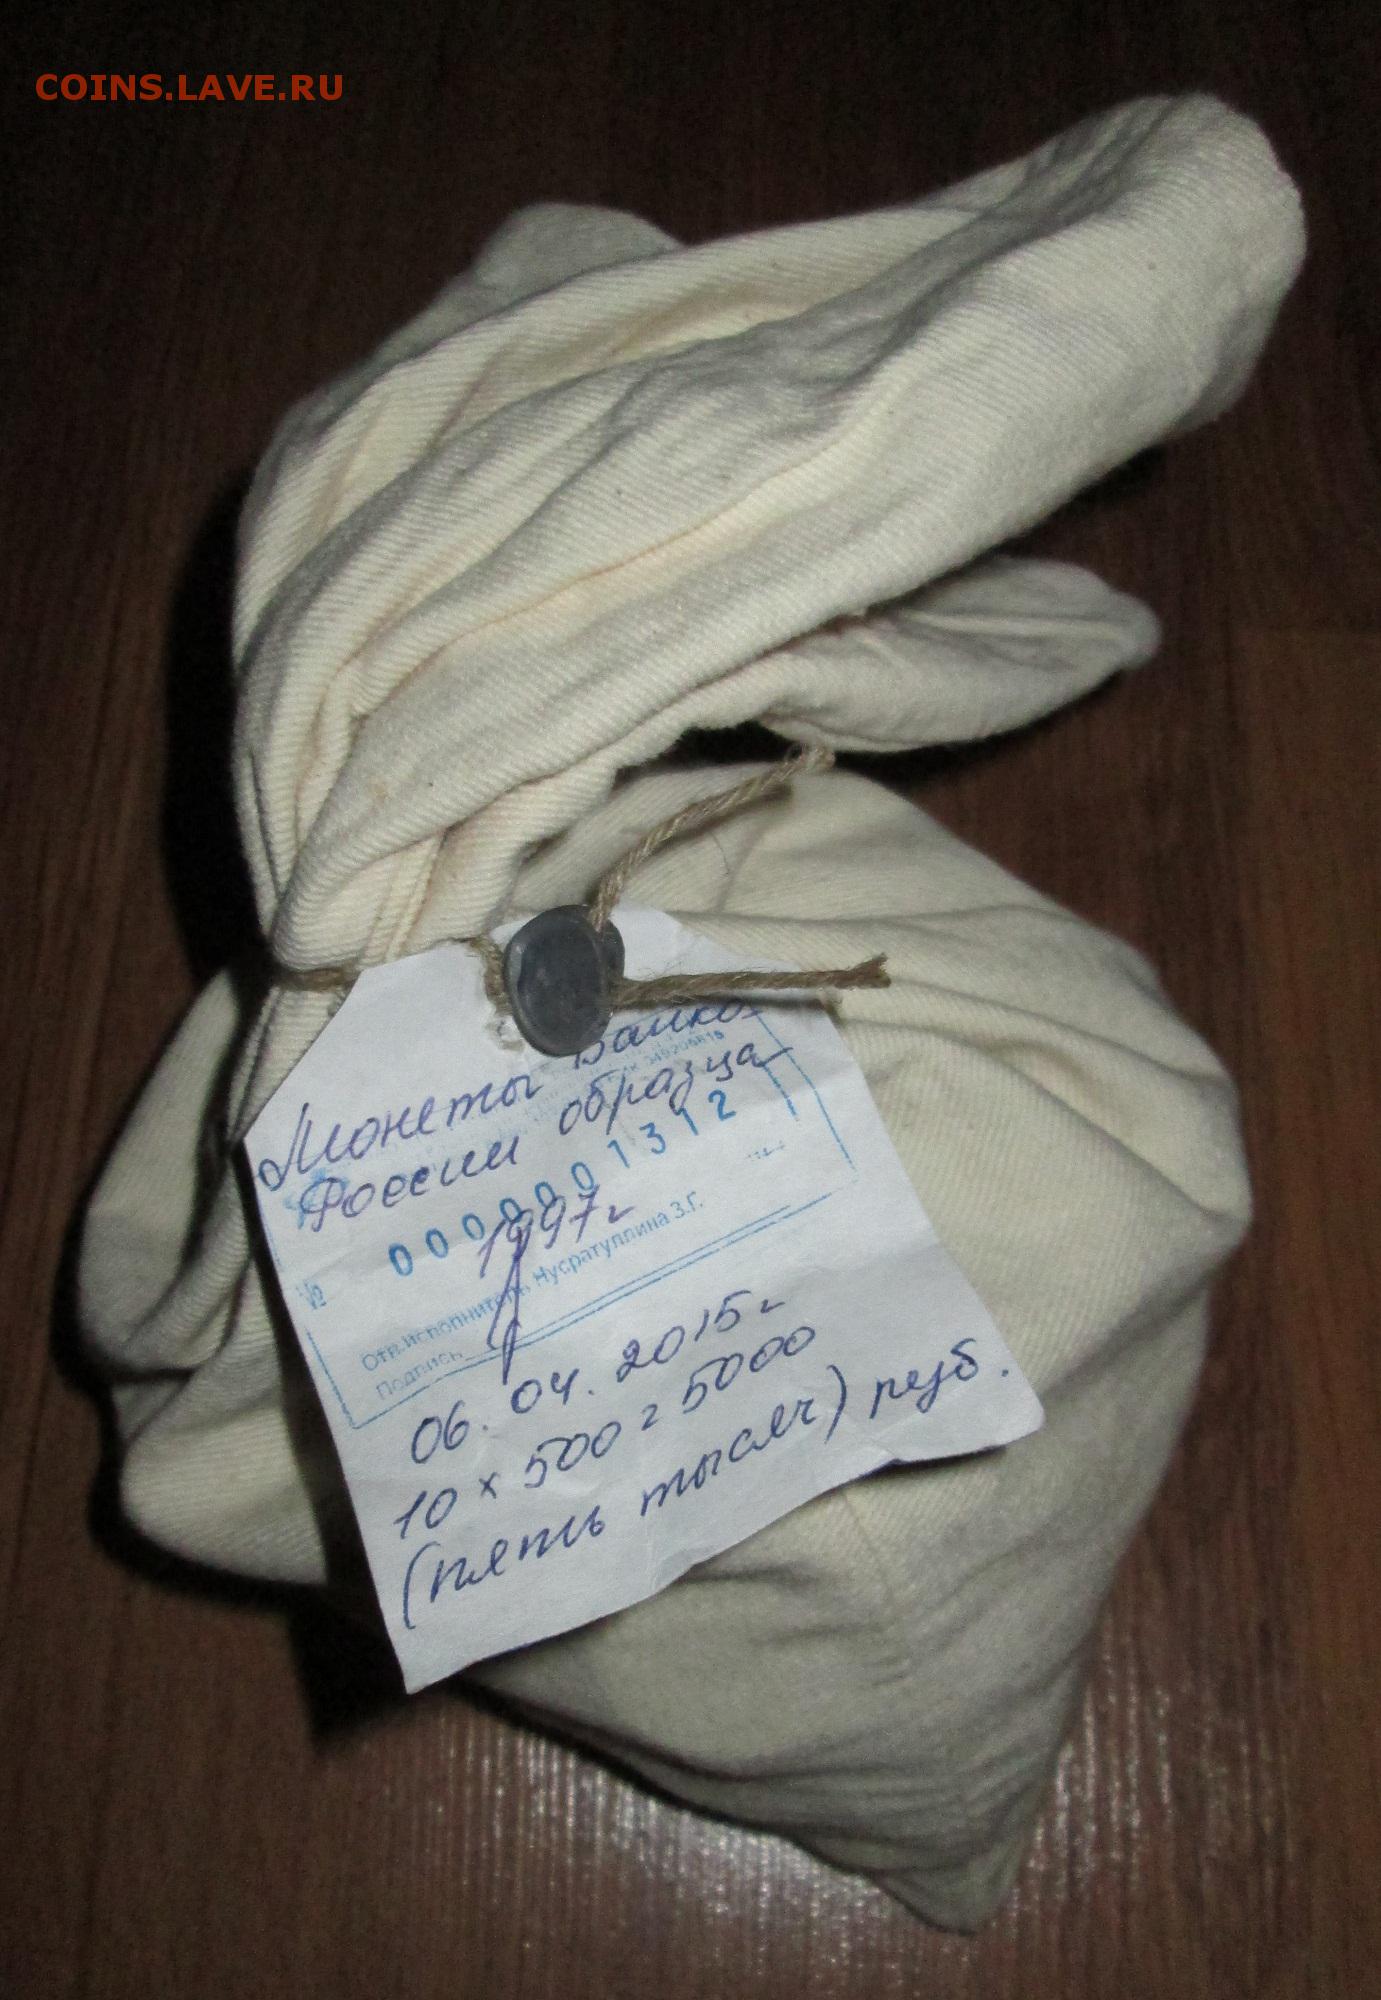 COINS.LAVE.RU
Монеты Банка
России образца
0000001312
1997г
№
Отв.исполнитель Нусратуллина З.Г.
Подпись
06.04.2015г
10 x 500 = 5000
(пять тысяч) руб.